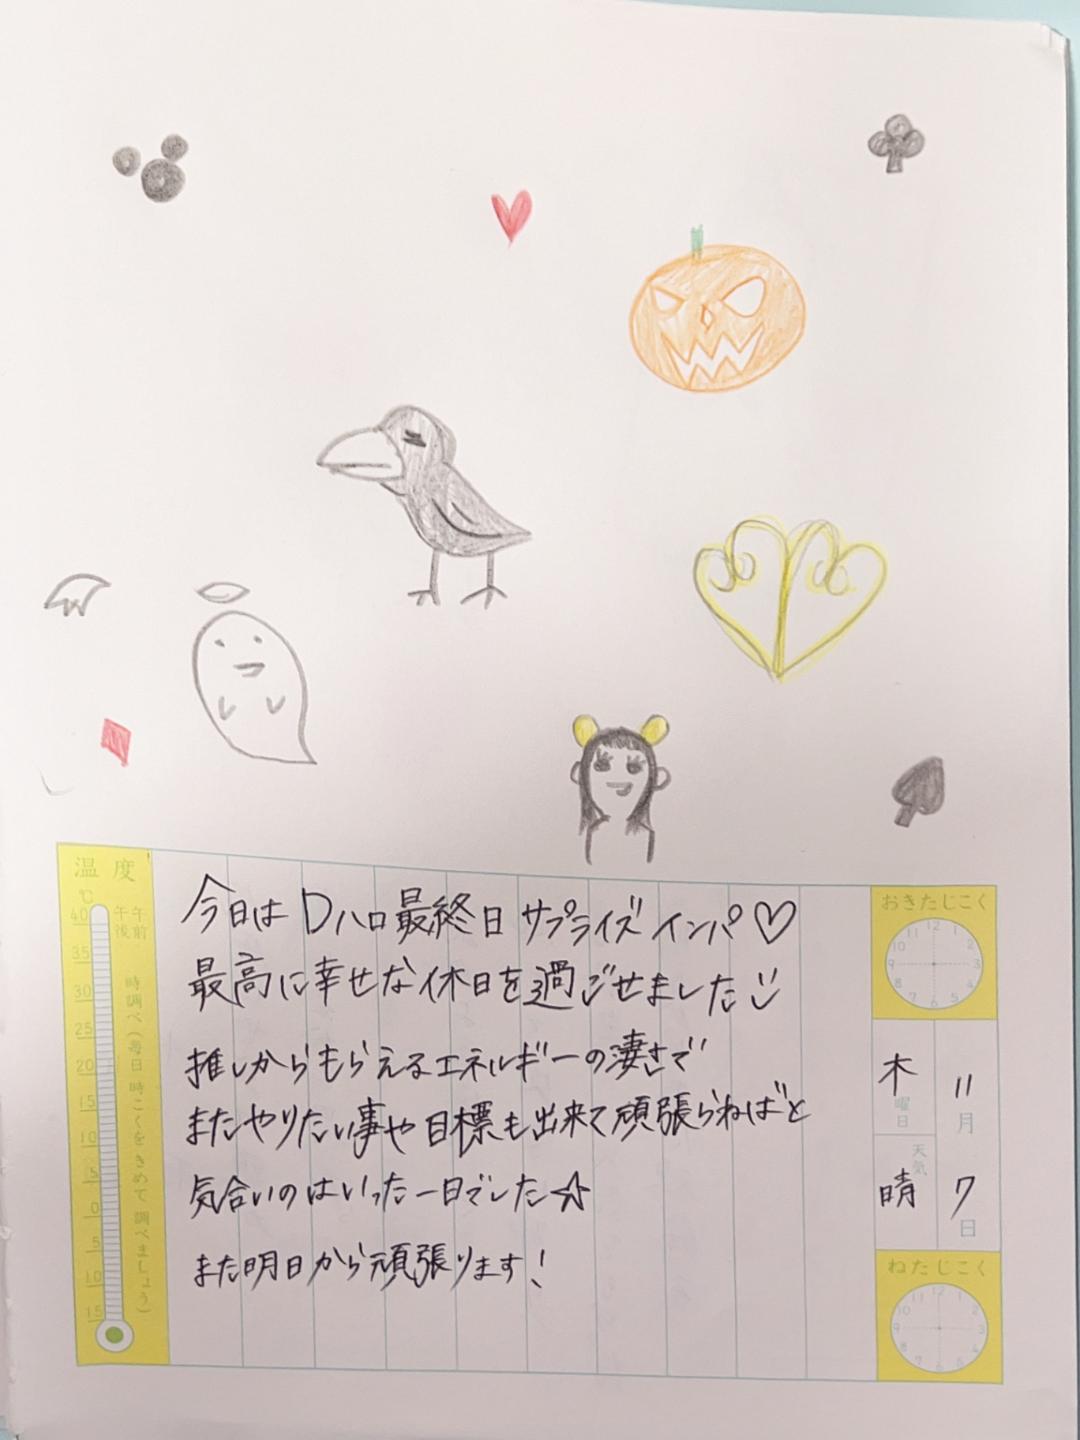 今日は Dハロ最終日 サプライズ インパ♡
最高に幸せな休日を過ごせました
推しからもらえるエネルギーの凄さで
またやりたい事や目標も出来て頑張らねばと
気合いのはいった一日でした☆
また明日から頑張ります!
温度
℃
午後
午前
40
35
30
25
20
15
10
5
0
5
10
15
時調べ(毎日 時こくをきめて調べましょう)
おきたじこく
12
1
2
3
4
5
6
7
8
9
10
11
木曜日
11月
天気
晴
7日
ねたじこく
12
1
2
3
4
5
6
7
8
9
10
11